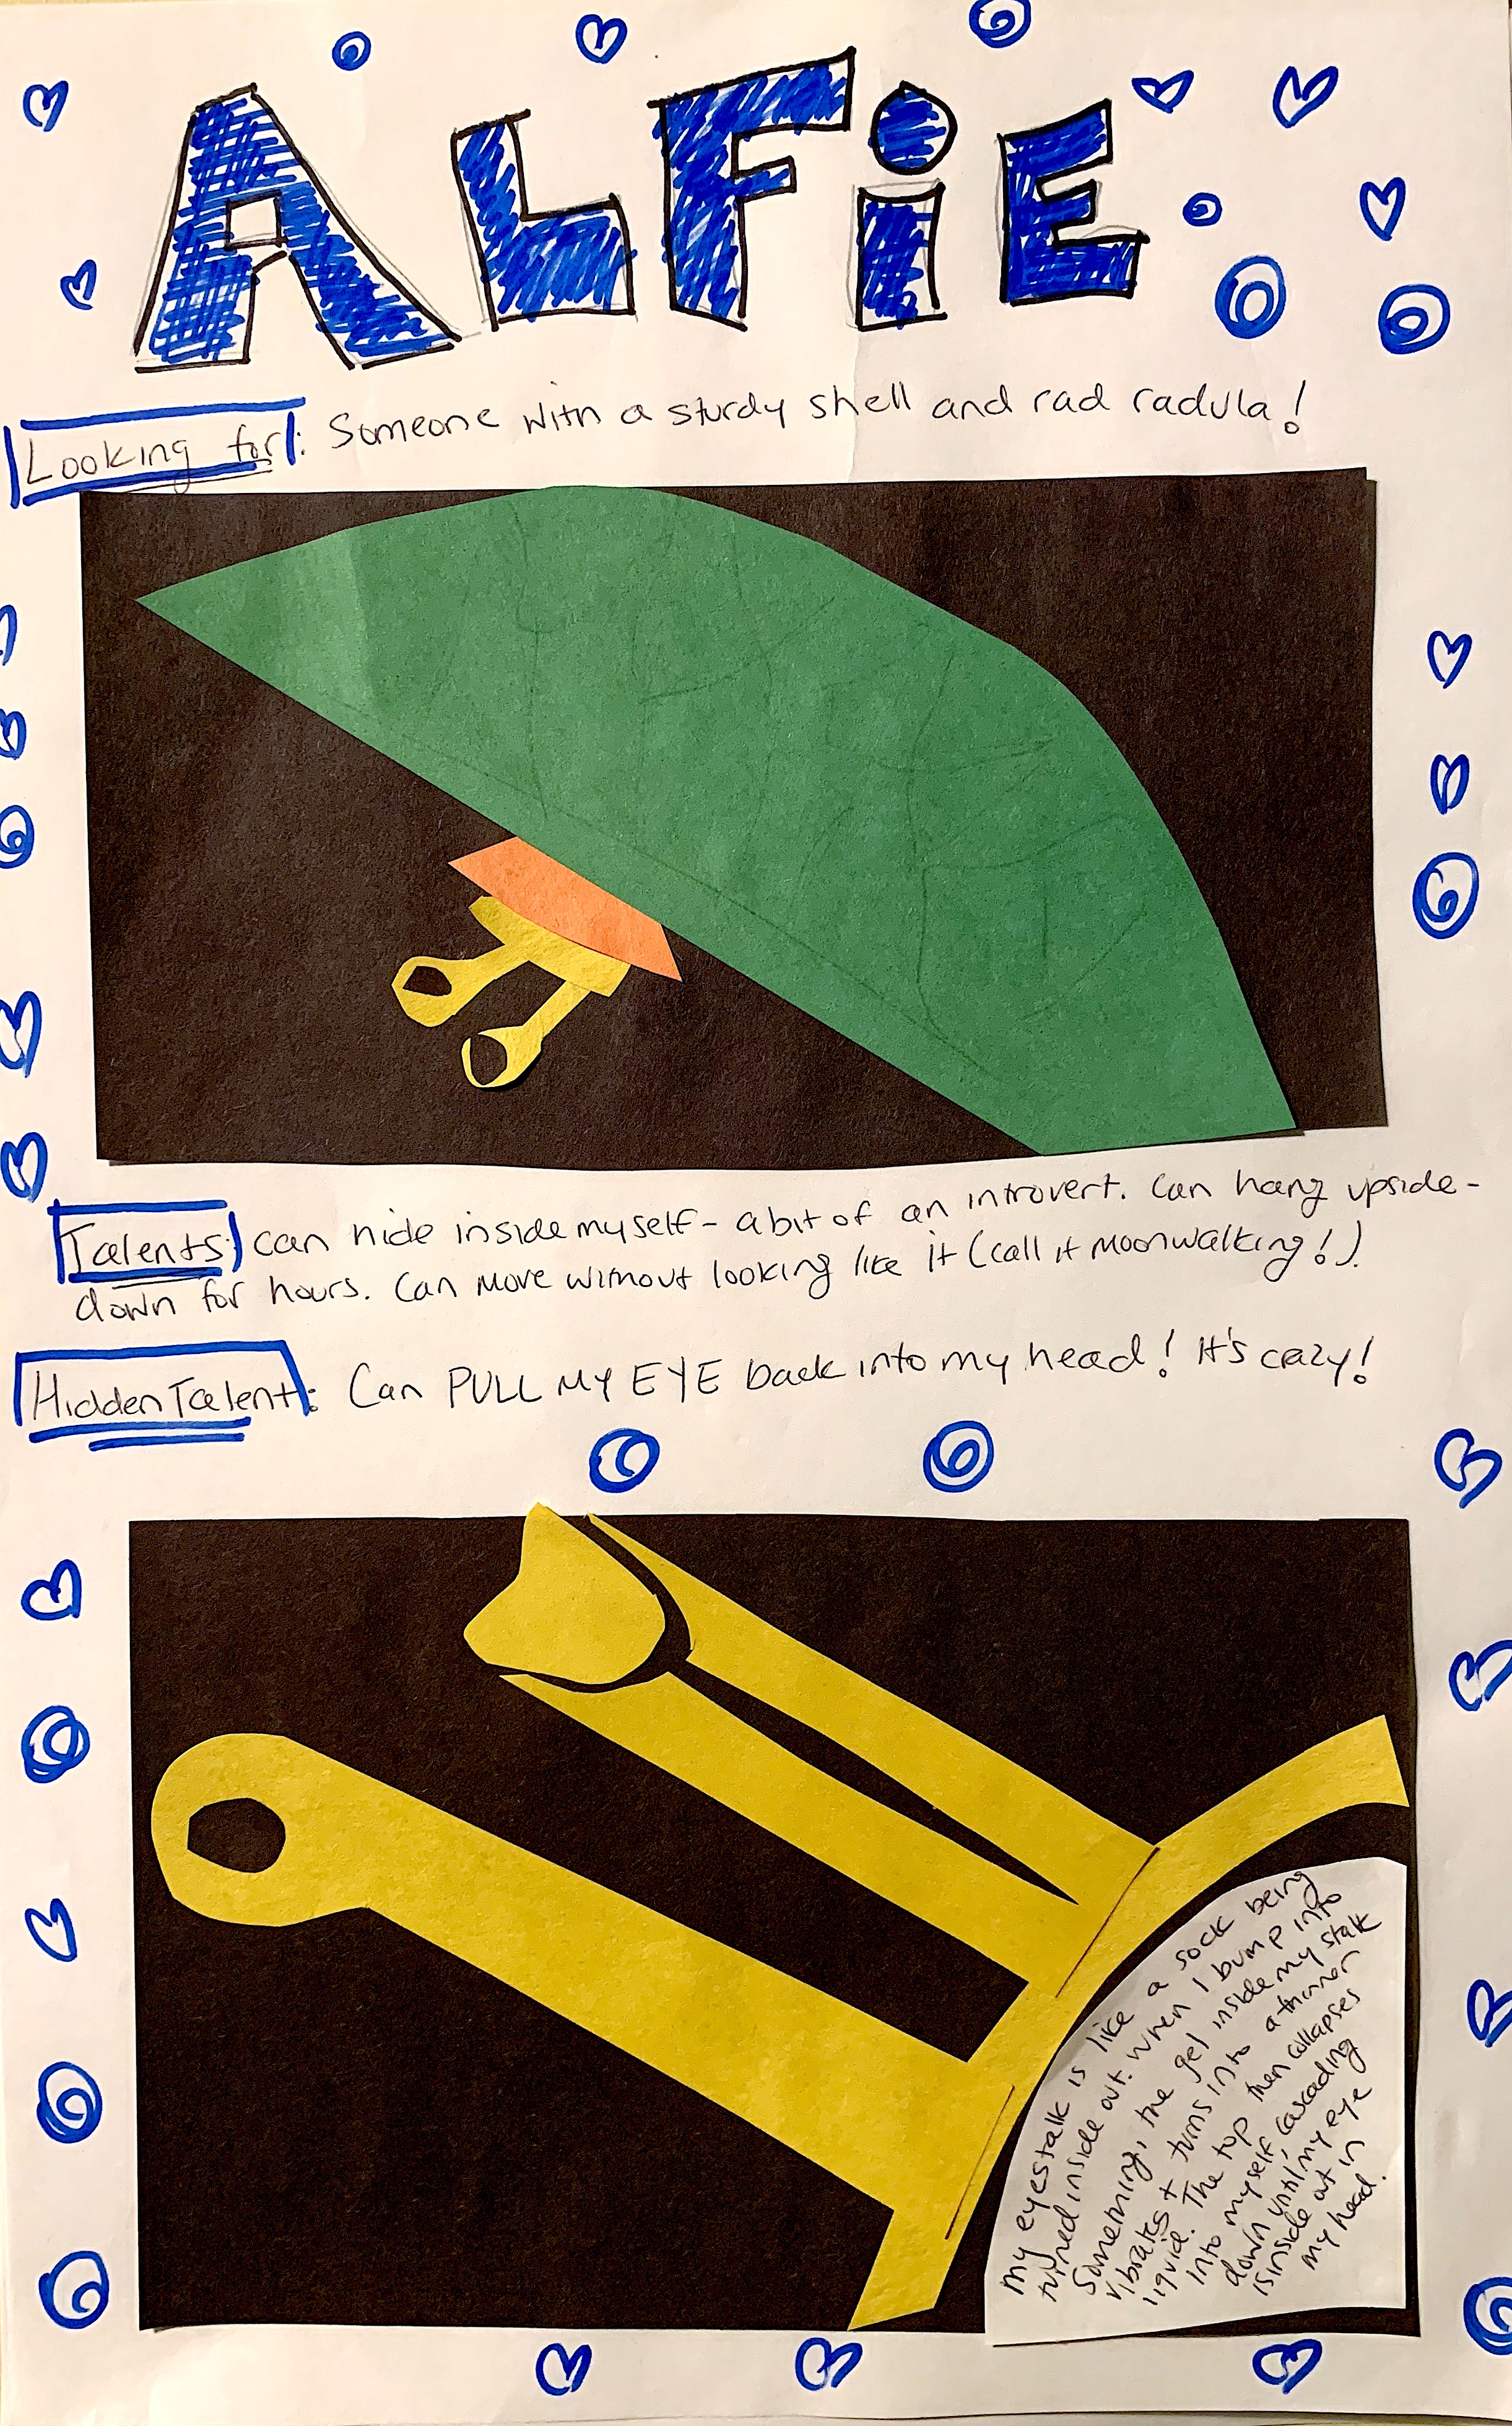 ALFiE
Looking for: Someone with a sturdy shell and rad radula!
Talents: can hide inside myself - a bit of an introvert. Can hang upside-
down for hours. Can move without looking like it (call it Moonwalking!).
Hidden Talent: Can PULL MY EYE back into my head! It's crazy!
my eyestalk is like a sock being
turned inside out. When I bump into
something, the gel inside my stalk
vibrates + turns into a thinner
liquid. The top then collapses
into myself, cascading
down until my eye
is inside out in
my head.